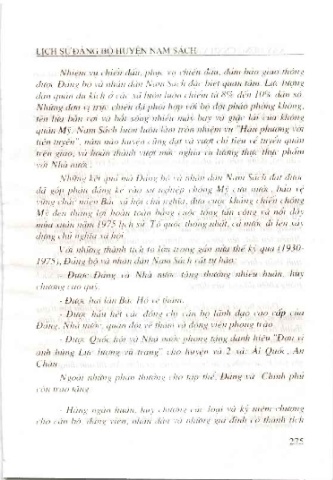 LỊCH SỬ ĐẢNG BỘ HUYỆN NAM SÁCH
Nhiệm vụ chiến đấu, phục vụ chiến đấu, đảm bảo giao thông
được Đảng bộ và nhân dân Nam Sách đặc biệt quan tâm. Lực lượng
dân quân du kích ở các xã luôn luôn chiếm từ 8% đến 10% dân số.
Những đơn vị trực chiến đã phối hợp với bộ đội pháo phòng không,
tên lửa bắn rơi và bắt sống nhiều máy bay và giặc lái của không
quân Mỹ. Nam Sách luôn luôn làm tròn nhiệm vụ "Hậu phương với
tiền tuyến", năm nào huyện cũng đạt và vượt chỉ tiêu về tuyển quân
trên giao, và hoàn thành vượt mức nghĩa vụ lương thực thực phẩm
với Nhà nước.
Những kết quả mà Đảng bộ và nhân dân Nam Sách đạt được
đã góp phần đáng kể vào sự nghiệp chống Mỹ cứu nước, bảo vệ
vững chắc miền Bắc xã hội chủ nghĩa, đưa cuộc kháng chiến chống
Mỹ đến thắng lợi hoàn toàn bằng cuộc tổng tấn công và nổi dậy
mùa xuân năm 1975 lịch sử. Tổ quốc thống nhất, cả nước đi lên xây
dựng chủ nghĩa xã hội.
Với những thành tích to lớn trong gần nửa thế kỷ qua (1930-
1975), Đảng bộ và nhân dân Nam Sách rất tự hào:
- Được Đảng và Nhà nước tặng thưởng nhiều huân, huy
chương cao quý.
- Được hai lần Bác Hồ về thăm.
- Được hầu hết các đồng chí cán bộ lãnh đạo cao cấp của
Đảng, Nhà nước, quân đội về thăm và động viên phong trào.
- Được Quốc hội và Nhà nước phong tặng danh hiệu "Đơn vị
anh hùng Lực lượng vũ trang" cho huyện và 2 xã: Ái Quốc, An
Châu.
Ngoài những phần thưởng cho tập thể, Đảng và Chính phủ
còn trao tặng:
- Hàng ngàn huân, huy chương các loại và kỷ niệm chương
cho cán bộ, đảng viên, nhân dân và những gia đình có thành tích
275